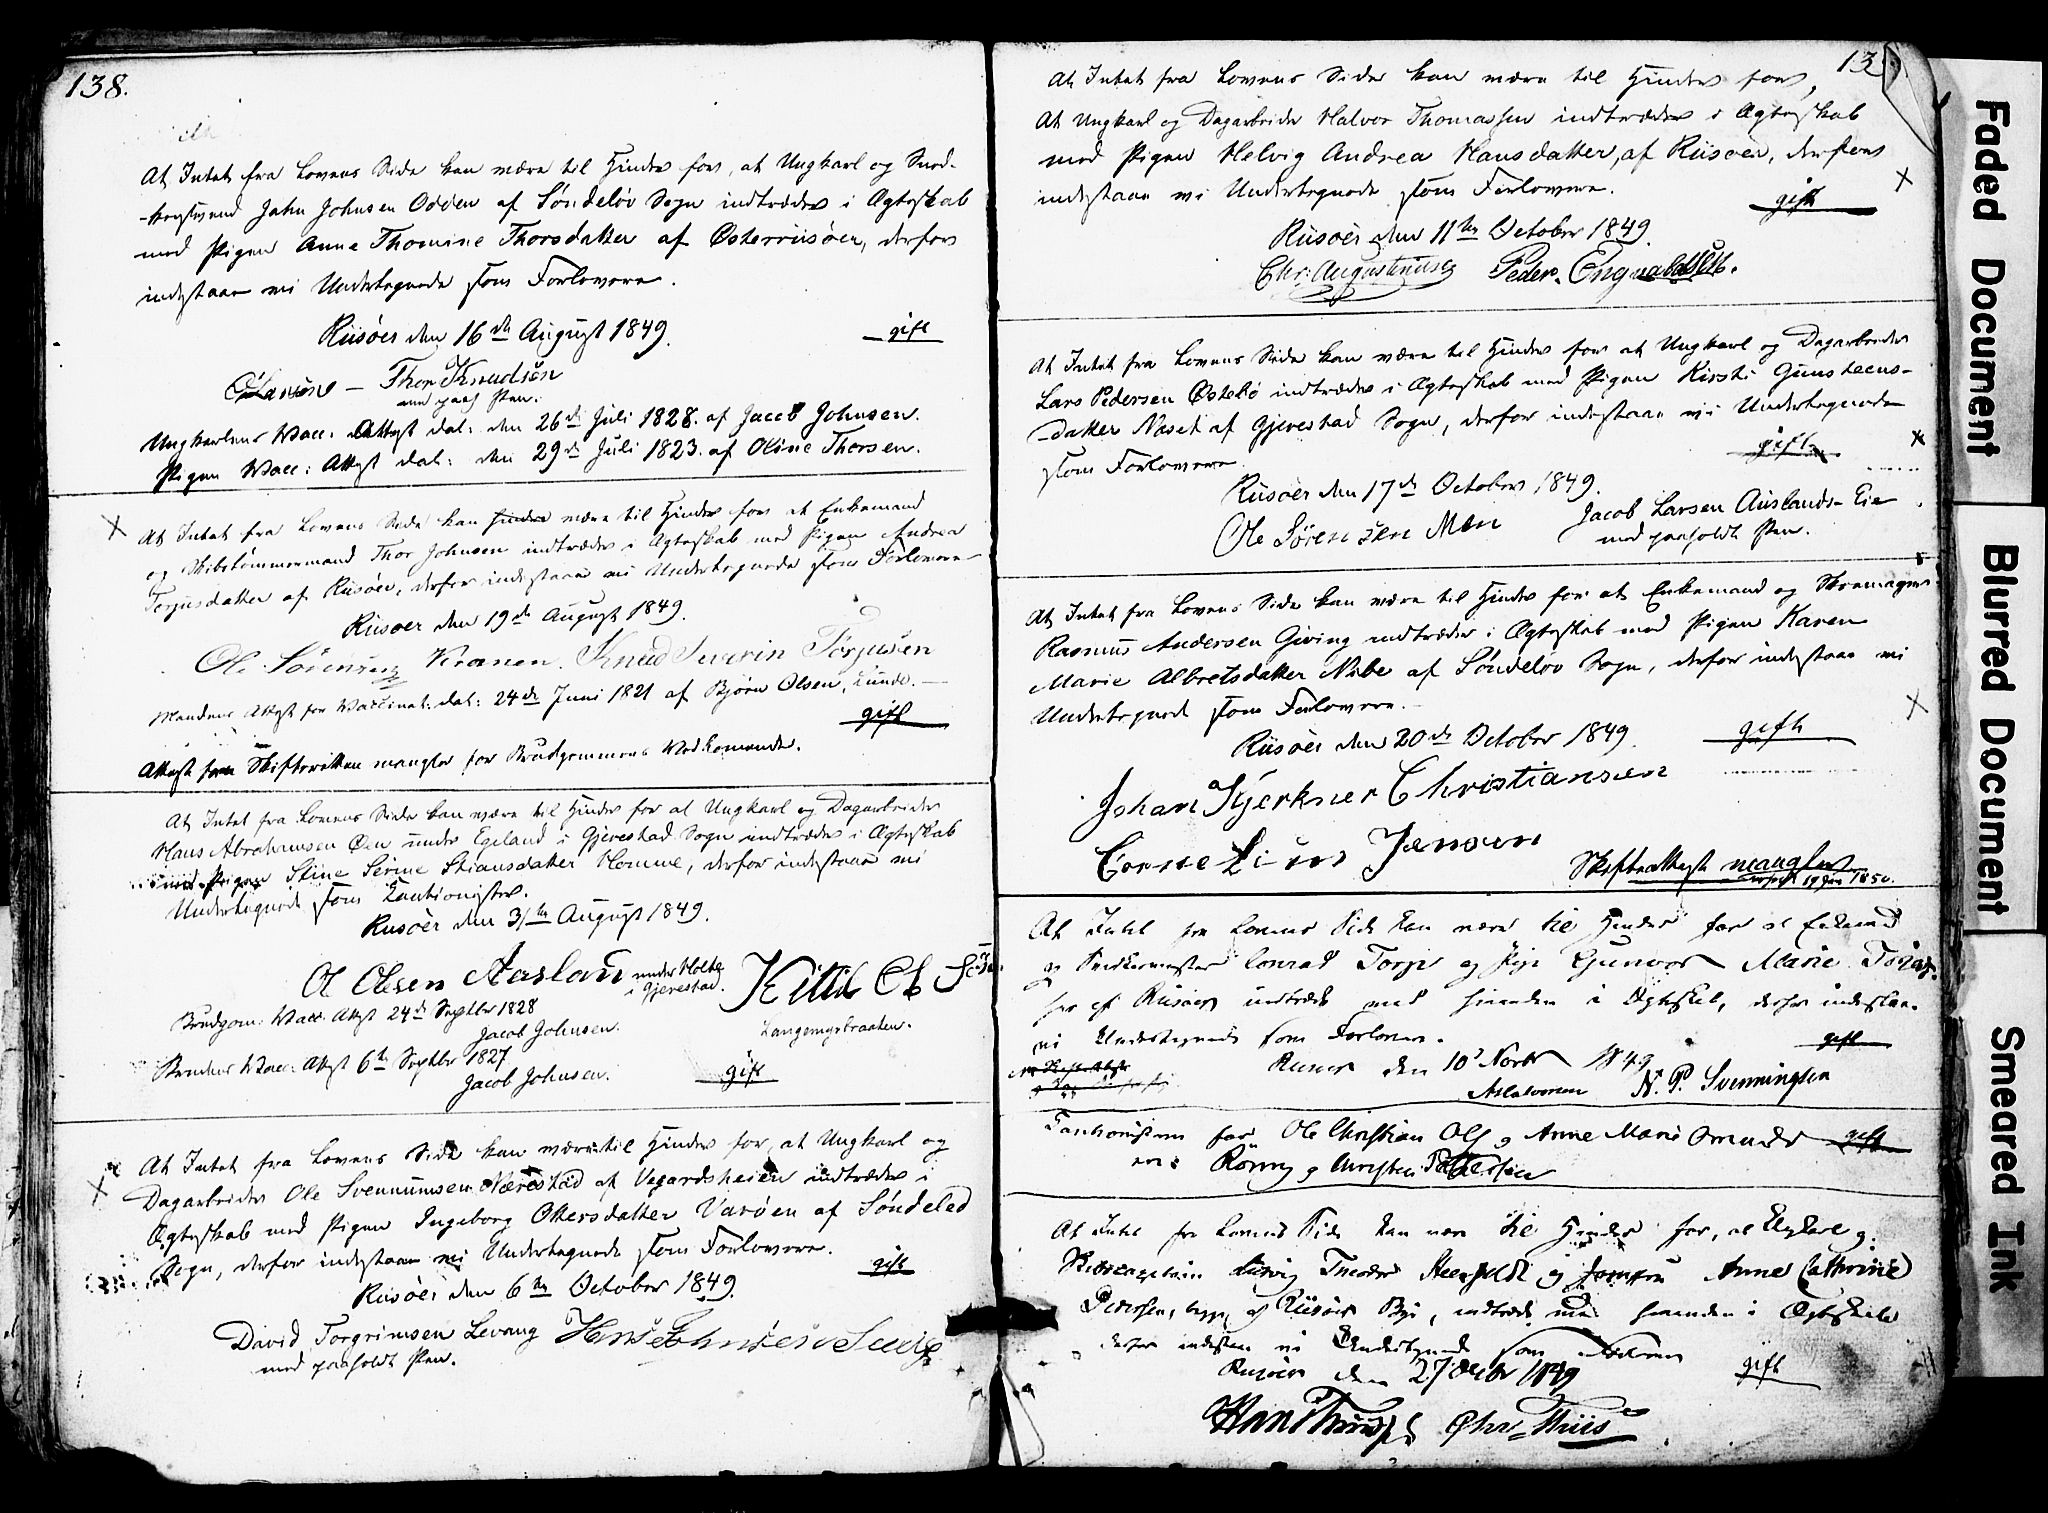 138.
At Intet fra Lovens Side kan være til Hinder for, at Ungkarl og Sned-
-kersvend John Johnsen Odden af Søndeløv Sogn indtræder i Ægteskab
med Pigen Anne Thomine Thorsdatter af Østerriisøer, derfor
indestaae vi Undertegnede som Forlovere.
Riisøer den 16de August 1849.
gift
O Larsen – Thor Knudsen
med paah Pen.
Ungkarlens Vacc: Attest dat: den 26de Juli 1828. af Jacob Johnsen.
Pigens Vacc: Attest dat: den 29de Juli 1823. af Oline Thorsen.
X At Intet fra Lovens Side kan hindre være til Hinder for at Enkemand
og Skibstømmermand Thor Johnsen indtræder i Ægteskab med Pigen Andrea
Torjusdatter af Riisøer, derfor indestaae vi Undertegnede som Forlovere
Riisøer den 19de August 1849.
Ole Sørensen Kranen. Knud Severin Torjusen
Mandens Attest for Vaccinat: dat: 24de Juni 1821 af Bjørn Olsen, Lunde.
gift
Attest fra Skifteretten mangler for Brudgommens Vedkomende.
At Intet fra Lovens Side kan være til Hinder for at Ungkarl og Dagarbeider
Hans Abrahamsen Øen under Egeland i Gjerestad Sogn indtræder i Ægteskab
med Pigen Stine Serine Stiansdatter Homme, derfor indestaae vi
Undertegnede som Cautionister.
Riisøer den 31te August 1849.
Ol Olsen Aasland under Holte i Gjerestad. Kittil Ols
Langemyrbraaten.
Brudgom: Vacc: Attest 24de Septbr 1828
Jacob Johnsen.
Brudens Vacc: Attest 6te Septbr 1827
Jacob Johnsen.
gift
X At Intet fra Lovens Side kan være til Hinder for, at Ungkarl og
Dagarbeider Ole Svennumsen Nærestad af Vegardsheien indtræder i
Ægteskab med Pigen Ingeborg Ottersdatter Varøen af Søndeled
Sogn, derfor indestaae vi Undertegnede som Forlovere.
gift
Riisøer den 6te October 1849.
David Torgrimsen Levang
med paaholdt Pen.
13
At Intet fra Lovens Side kan være til Hinder for,
At Ungkarl og Dagarbeider Halvor Thomassen indtræder i Ægteskab
med Pigen Helvig Andrea Hansdatter, af Riisøer, derfor
indestaae vi Undertegnede som Forlovere. X
gift
Riisøer den 11te October 1849.
Chr: Augustinusen Peder.
At Intet fra Lovens Side kan være til Hinder for at Ungkarl og Dagarbeider
Lars Pedersen Østebø indtræder i Ægteskab med Pigen Kirsti Gunsteens-
-datter Næset af Gjerestad Sogn, derfor indestaae vi Undertegnede
som Forlovere. gift X
Riisøer den 17de October 1849.
Ole Sørensen Men Jacob Larsen Auslands-Eie
med paaholdt Pen.
At Intet fra Lovens Side kan være til Hinder for at Enkemand og Skomager
Rasmus Andersen Giving indtræder i Ægteskab med Pigen Karen
Marie Albretsdatter Nibe af Søndeløv Sogn, derfor indestaae vi
Undertegnede som Forlovere. X
Riisøer den 20de October 1849. gift
Johan Kjerkner Christiansen
Cornelius Jensen
Skifteattest mangler
1850.
At Intet fra Lovens Side kan være til Hinder for at Enkemand
og Snedkermester Conrad Torp og Pige Gunvor Marie
af Riisøer indtræde med hinanden i Ægteskab, derfor indestaae
vi Undertegnede som Forlovere.
gift
Riisøer den 10 Novbr 1849
N. P. Svenningsen
for Ole Christian Ols og Anne Marie gift
Rønning og Christen
At Intet fra Lovens Side kan være til Hinder for, at Ungkarl og
Ludvig Theodor og Jomfru Anne Cathrine
Pedersen, begge af Riisøer By, indtræde med hinanden i Ægteskab
derfor indestaae vi Undertegnede som Forlovere
Riisøer den 27 Octbr 1849
gift